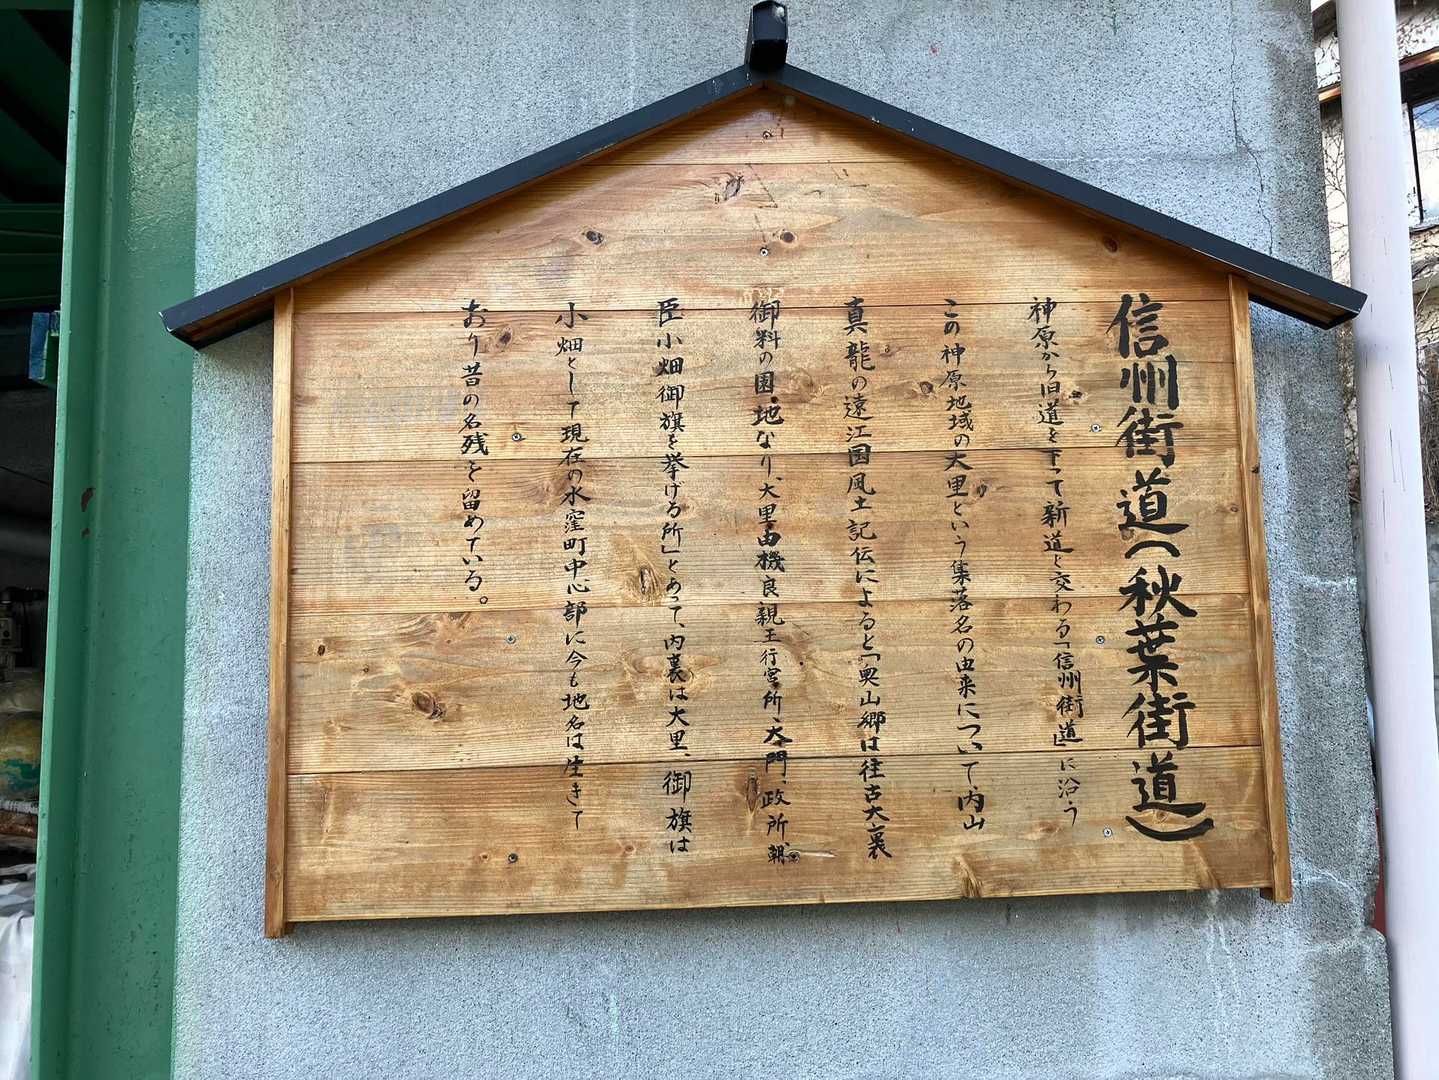 信州街道(秋葉街道)
神原から旧道を下って新道と交わる「信州街道」に沿う
この神原地域の大里という集落名の由来について、内山
真龍の遠江国風土記伝によると「奥山郷は往古大裏
御料の園地なり、大里由機良親王行宮所、大門、政所、朝
臣小畑御旗を挙げる所」とあって、内裏は大里、御旗は
小畑として現在の水窪町中心部に今も地名は生きて
おり昔の名残を留めている。